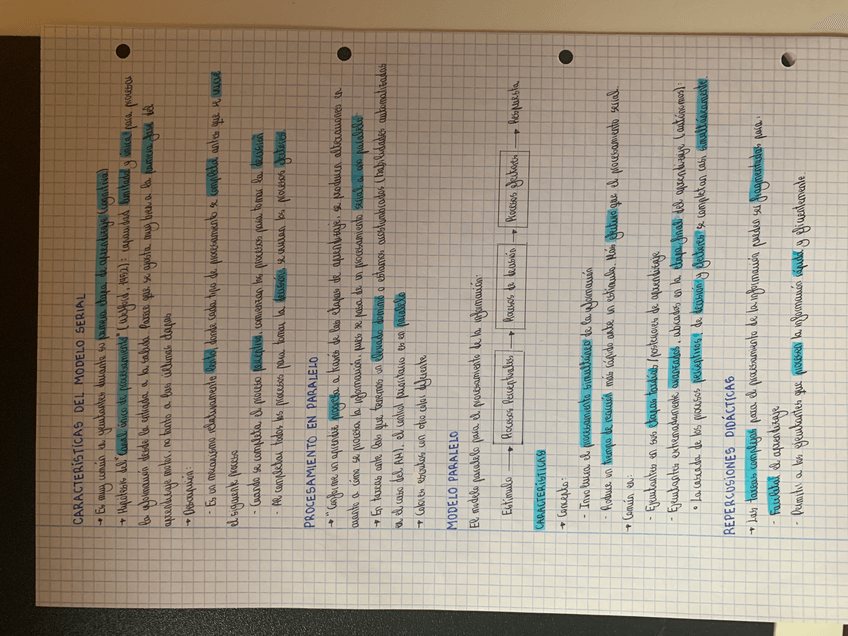 CARACTERÍSTICAS DEL MODELO SERIAL
→ Es muy común en ejecutantes durante su primera etapa de aprendizaje (cognitiva)
→ Hipótesis del "canal único de procesamiento" (Welford, 1952): capacidad limitada y única para procesar
la información desde la entrada a la salida. Parece que se ajusta muy bien a la primera fase del
aprendizaje motor, no tanto a las últimas etapas
→ Descripción:
- Es un mecanismo relativamente lento, donde cada tipo de procesamiento se completa antes que se inicie
el siguiente proceso
- Cuando se completa el proceso perceptivo comienzan los procesos para tomar la decisión
- Al completar todos los procesos para tomar la decisión, se inician los procesos efectores
PROCESAMIENTO EN PARALELO
→ "Conforme un aprendiz progresa a través de las etapas de aprendizaje, se producen alteraciones en
cuanto a cómo se procesa la información, pues se pasa de un procesamiento serial a un paralelo
→ En tareas ante las que tenemos un elevado dominio o estamos acostumbrados (habilidades automatizadas
en el caso del AM), el control prioritario es en paralelo
→ Caben escoltas
MODELO PARALELO
El modelo paralelo para el procesamiento de la información:
Estímulo → Procesos Perceptuales → Procesos de decisión → Procesos efectores → Respuesta
CARACTERÍSTICAS
→ Concepto:
- Involucra el procesamiento simultáneo de la información
- Produce un tiempo de reacción más rápido ante un estímulo. Más efectivo que el procesamiento serial.
→ Común en:
- Ejecutantes en sus etapas tardías/posteriores de aprendizaje
- Ejecutantes extremadamente avanzados, ubicados en la etapa final del aprendizaje (autónomos):
° La cascada de los procesos perceptivos, de decisión y efectores se completan casi simultáneamente
REPERCUSIONES DIDÁCTICAS
→ Las tareas complejas para el procesamiento de la información pueden ser fragmentadas para:
- Facilitar el aprendizaje
- Permitir a los ejecutantes que procesen la información rápida y eficientemente